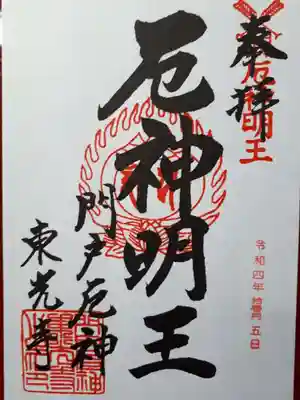 奉拝
明王
令和四年 五日
厄神明王
門戸厄神
東光寺